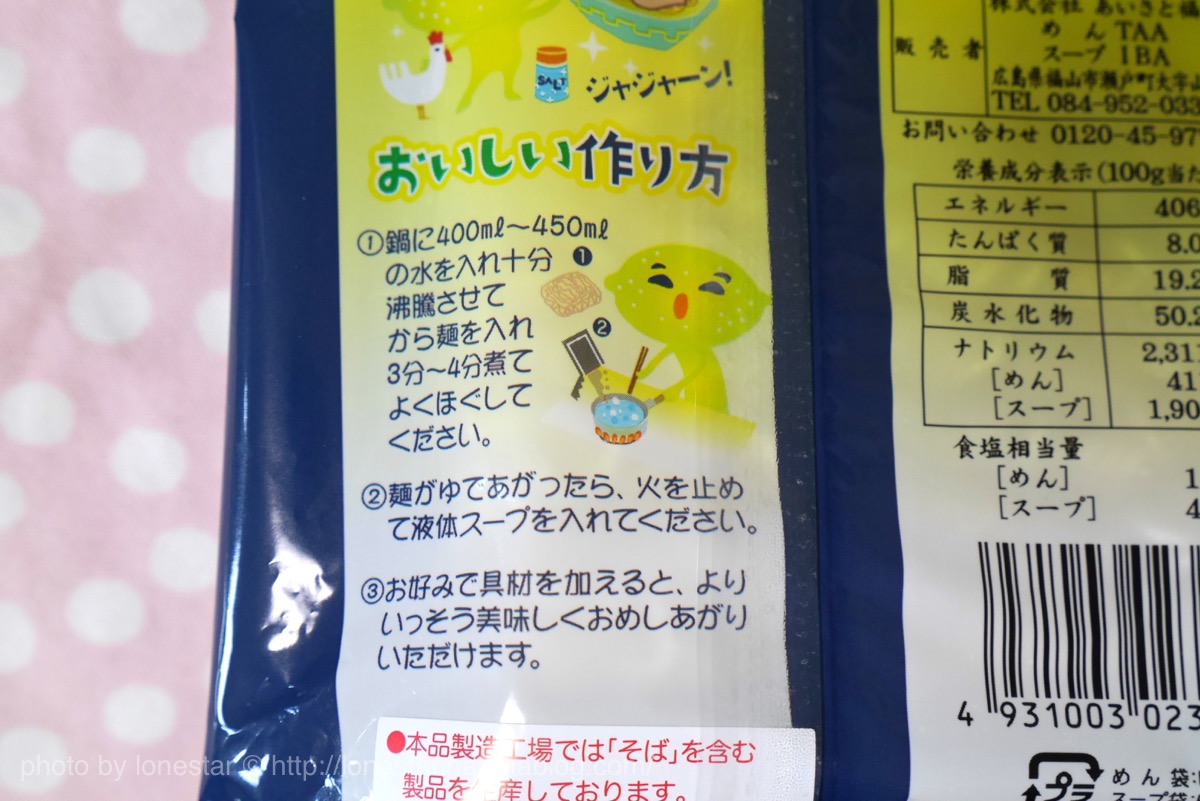 SALT
ジャジャーン!
おいしい作り方
①鍋に400㎖〜450㎖
の水を入れ十分
沸騰させて
から麺を入れ
3分〜4分煮て
よくほぐして
ください。
❶
❷
②麺がゆであがったら、火を止め
て液体スープを入れてください。
③お好みで具材を加えると、より
いっそう美味しくおめしあがり
いただけます。
●本品製造工場では「そば」を含む
製品を生産しております。
販売者
株式会社 あいさと福
めん TAA
スープ IBA
広島県福山市瀬戸町大字
TEL 084-952-033
お問い合わせ 0120-45-97
栄養成分表示(100g当た
エネルギー 406
たんぱく質 8.0
脂質 19.2
炭水化物 50.2
ナトリウム 2,311
[めん] 41
[スープ] 1,90
食塩相当量
[めん] 1
[スープ] 4
4 931003 023
プラ
めん袋:
スープ袋:
photo by lonestar © http://